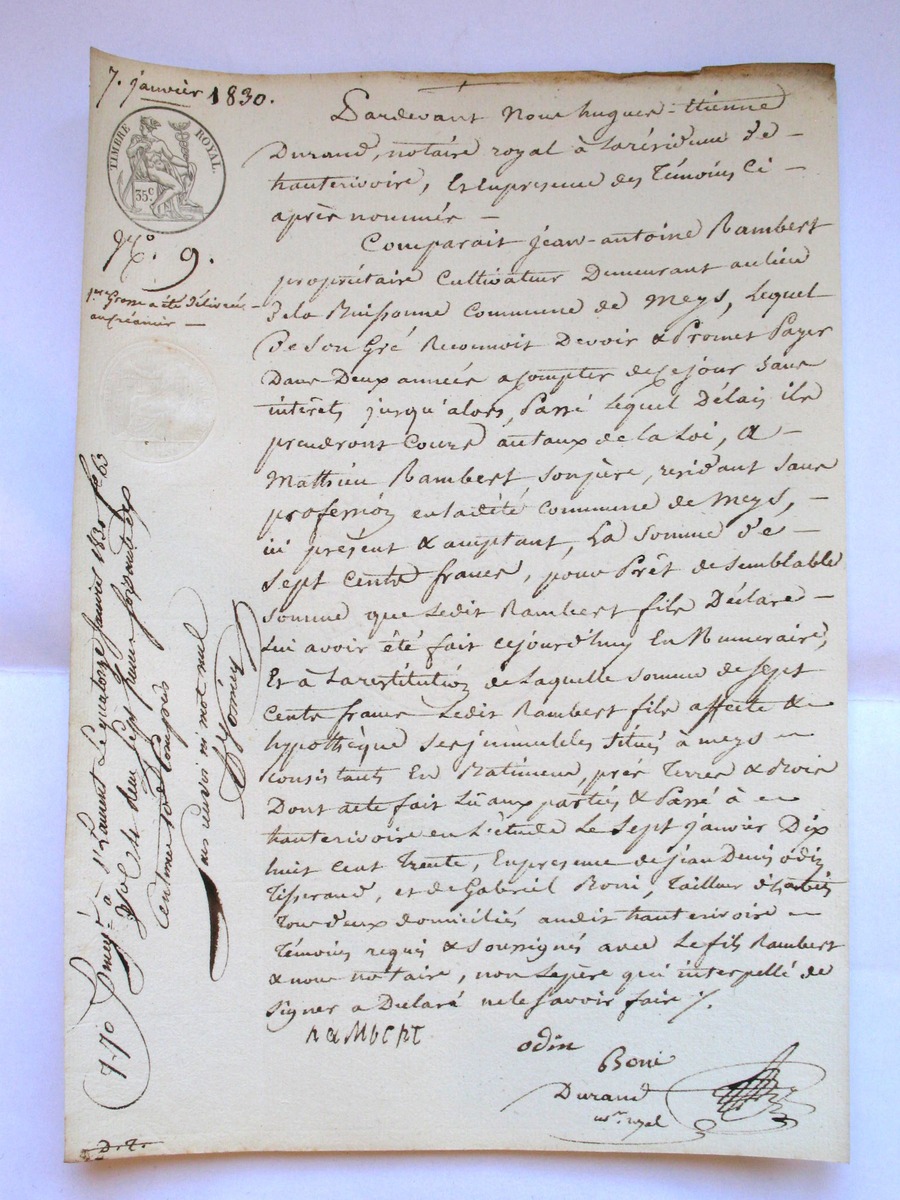 7. janvier 1830.
TIMBRE ROYAL.
35 c
No. 9.
1re Grosse a été délivrée
au créancier —
Pardevant Nous hugues-Etienne
Durand, notaire royal à la résidence de
hauterivoire, Et en presence des Témoins Ci
après nommés —
Comparait jean-antoine Rambert
propriétaire Cultivateur Demeurant au lieu
de la Buissonne Commune de Meys, Lequel
de Son Gré Reconnoit Devoir & Promet Payer
Dans Deux années a Compter de ce jour Sans
intérêts jusqu'alors, Passé Lequel Délais ils
prendront Cours au taux de la Loi, A
Mathieu Rambert son père, residant Sans
profession en la dite Commune de Meys,
ici présent & acceptant, La Somme de
Sept Cents francs, pour Prêt de Semblable
Somme que Ledit Rambert fils Déclare
Lui avoir été fait cejourd'huy En Numeraire,
Et à La restitution de Laquelle Somme de Sept
Cents francs Ledit Rambert fils affecte &
hypothèque Ses immeubles situés à meys
consistants En Batimens, prés Terres & Bois
Dont acte fait Lu aux parties & Passé à
hauterivoire en L'étude Le Sept janvier Dix
huit cent Trente, En presence de jean Denis odin
Tisserand, et de Gabriel Boni, Tailleur d'habits
Tous deux domiciliés audit hauterivoire
Témoins requis & Soussignés avec Le fils Rambert
& nous notaire, non Le père qui interpellé de
Signer a Déclaré ne le Savoir faire ./.
RAMBERT
odin
Boni
Durand
no.re royal
à St Laurent Le quatorze Janvier 1830 fo 63
Sept francs soixante dix
Centimes 10e Compris
sans renvoi ni mot nul
7-70